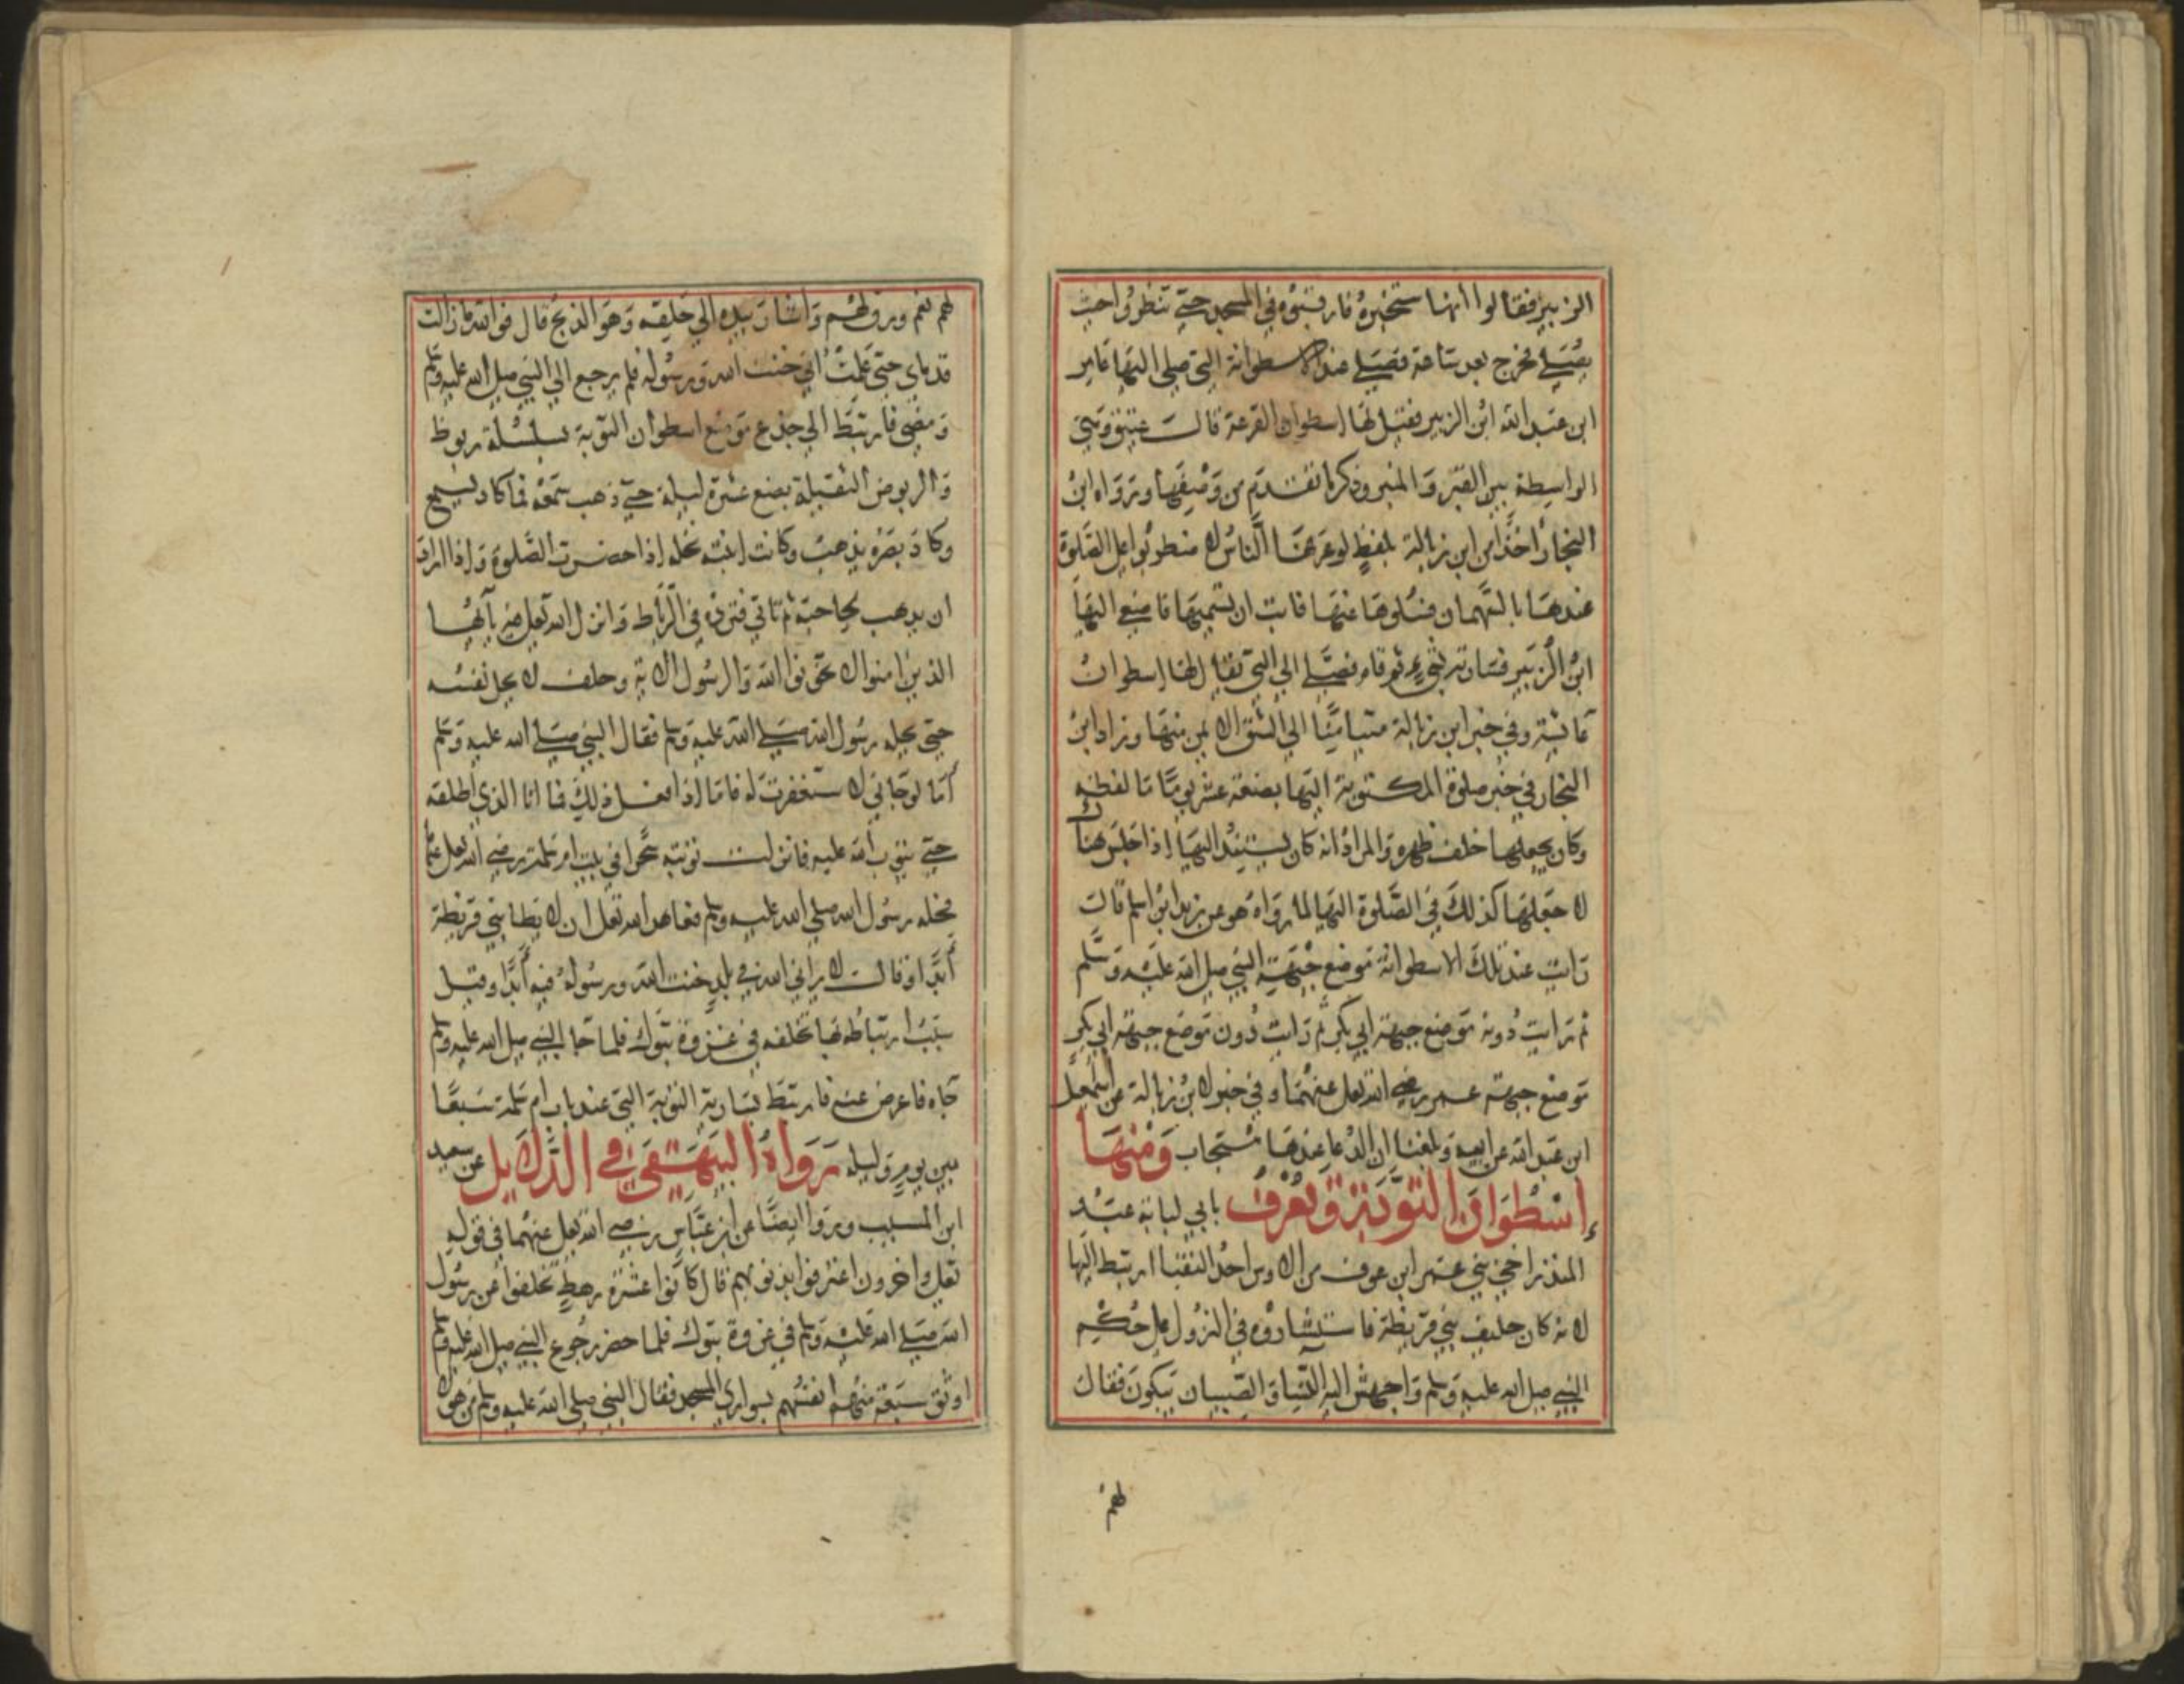 الزبير فقالوا انها ستخبره فارقبوه في المسجد حتى تنظروا حيث
يصلي فخرج بعد ساعة فصلى عند الاسطوانة التي صلى اليها عامر
ابن عبد الله ابن الزبير فقيل لها اسطوان القرعة قال عتيق وهي
الواسطة بين القبر والمنبر وذكر ما تقدم من وصفها ورواه ابن
النجار اخذا من ابن زبالة بلفظ لو عرفها الناس لاضطربوا على الصلوة
عندها بالسهمان فسئلوها عنها فابت ان تسميها فاصغى اليها
ابن الزبير فسارته بشيء ثم قام فصلى الى التي يقال لها اسطوان
عائشة وفي خبر ابن زبالة متيامنا الى الشق الايمن منها وزاد ابن
النجار في خبر صلوة المكتوبة اليها بضعة عشر يوما ما لفظه
وكان يجعلها خلف ظهره والمراد انه كان يستند اليها اذا جلس هناك
لا جعلها كذلك في الصلوة اليها لما رواه هو عن زيد ابن اسلم قال
رايت عند تلك الاسطوانة موضع جبهة النبي صلى الله عليه وسلم
ثم رايت دونه موضع جبهة ابي بكر ثم رايت دون موضع جبهة ابي بكر
موضع جبهة عمر رضي الله تعلى عنهما وفي خبر لابن زبالة عن اسمعيل
ابن عبد الله عن ابيه وبلغنا ان الدعا عندها مستجاب ومنها
إسطوان التوبة وتعرف بابي لبابة عبد
المنذر اخي بني عمر ابن عوف من الاوس احد النقبا ارتبط اليها
لانه كان حليف بني قريظة فاستشاروه في النزول على حكم
النبي صلى الله عليه وسلم واجهش اليه النسا والصبيان يبكون فقال
لهم
لهم نعم ورق لهم واشار بيده الى حلقه وهو الذبح قال فو الله ما زالت
قدماي حتى علمت اني خنت الله ورسوله فلم يرجع الى النبي صلى الله عليه وسلم
ومضى فارتبط الى جذع موضع اسطوان التوبة بسلسلة ربوظ
والربوض الثقيلة بضع عشرة ليلة حتى ذهب سمعه فما كاد يسمع
وكاد بصره يذهب وكانت ابنته تحله اذا حضرت الصلوة واذا اراد
ان يذهب لحاجته ثم تاتي فترده في الرباط وانزل الله تعلى فيه يا ايها
الذين امنوا لا تخونوا الله والرسول الاية وحلف لا يحل نفسه
حتى يحله رسول الله صلى الله عليه وسلم فقال النبي صلى الله عليه وسلم
أما لو جاني لاستغفرت له فاما اذا فعل ذلك فما انا الذي اطلقه
حتى يتوب الله عليه فانزلت توبته سحرا في بيت ام سلمة رضي الله تعلى عنها
فحله رسول الله صلى الله عليه وسلم فعاهد الله تعلى ان لا يطا بني قريظة
أبدا وقال لا يراني الله في بلد خنت الله ورسوله فيه أبدا وقيل
سبب ارتباطه بها تخلفه في غزوة تبوك فلما جا النبي صلى الله عليه وسلم
جاه فاعرض عنه فارتبط بسارية التوبة التي عند باب ام سلمة سبعا
بين يوم وليلة رواه البيهقي في الدلايل عن سعيد
ابن المسيب وروا ايضا عن ابن عباس رضي الله تعلى عنهما في قوله
تعلى واخرون اعترفوا بذنوبهم قال كانوا عشرة رهط تخلفوا عن رسول
الله صلى الله عليه وسلم في غزوة تبوك فلما حضر رجوع النبي صلى الله عليه وسلم
اوثق سبعة منهم انفسهم بسواري المسجد فقال النبي صلى الله عليه وسلم من هولا